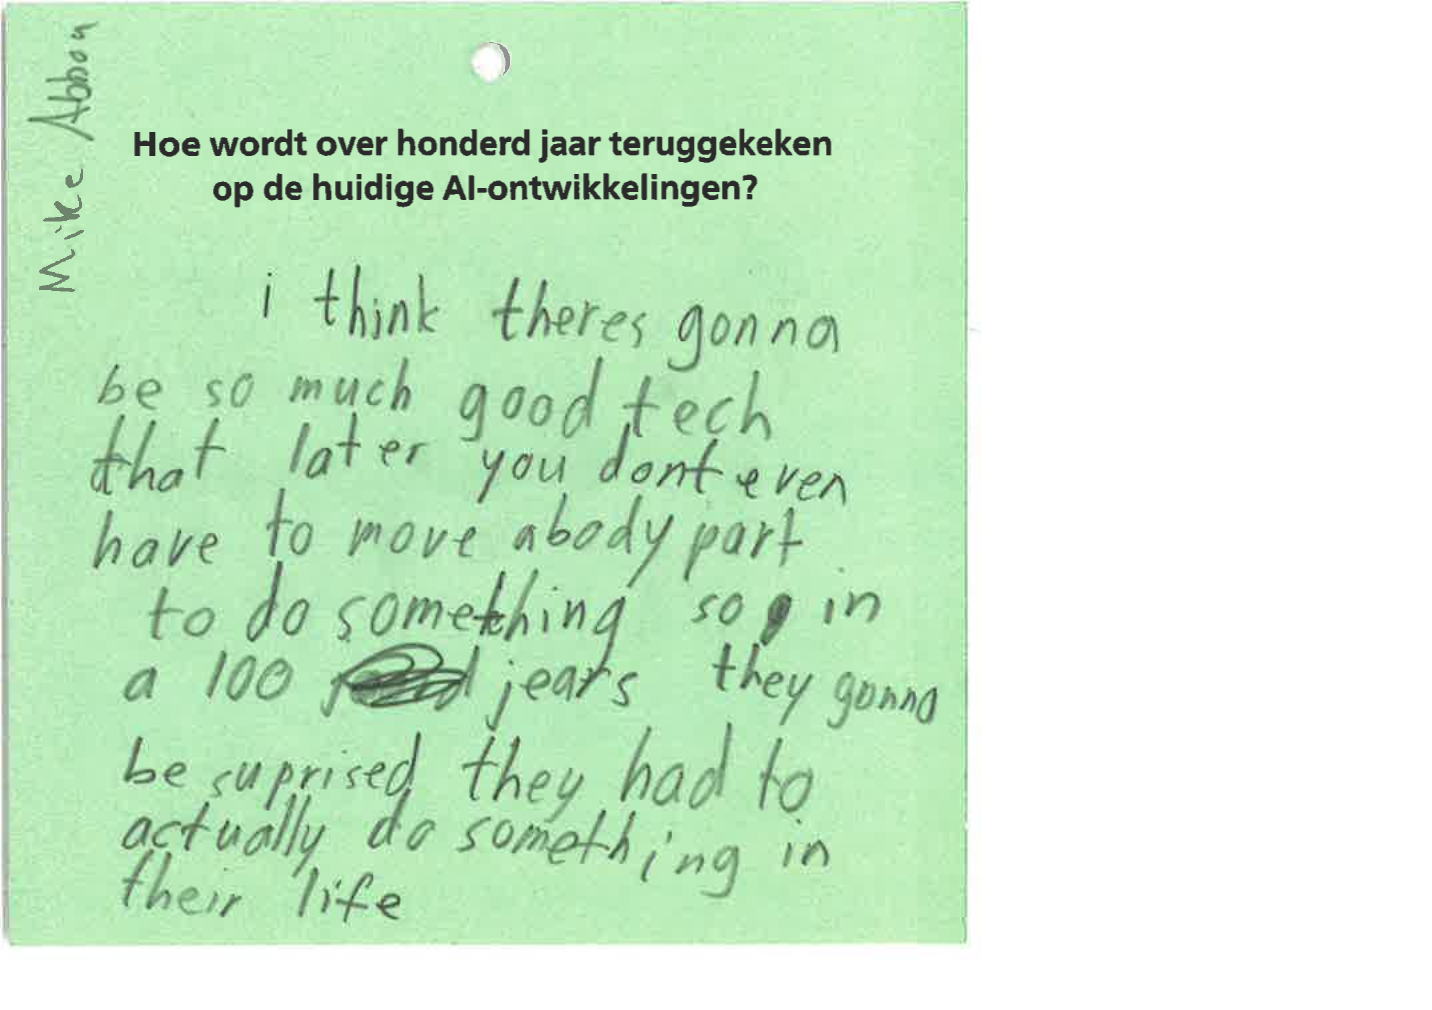 Mike Abbou
Hoe wordt over honderd jaar teruggekeken
op de huidige AI-ontwikkelingen?
i think theres gonna
be so much good tech
that later you dont even
have to move a body part
to do something so in
a 100 jears they gonna
be suprised they had to
actually do something in
their life